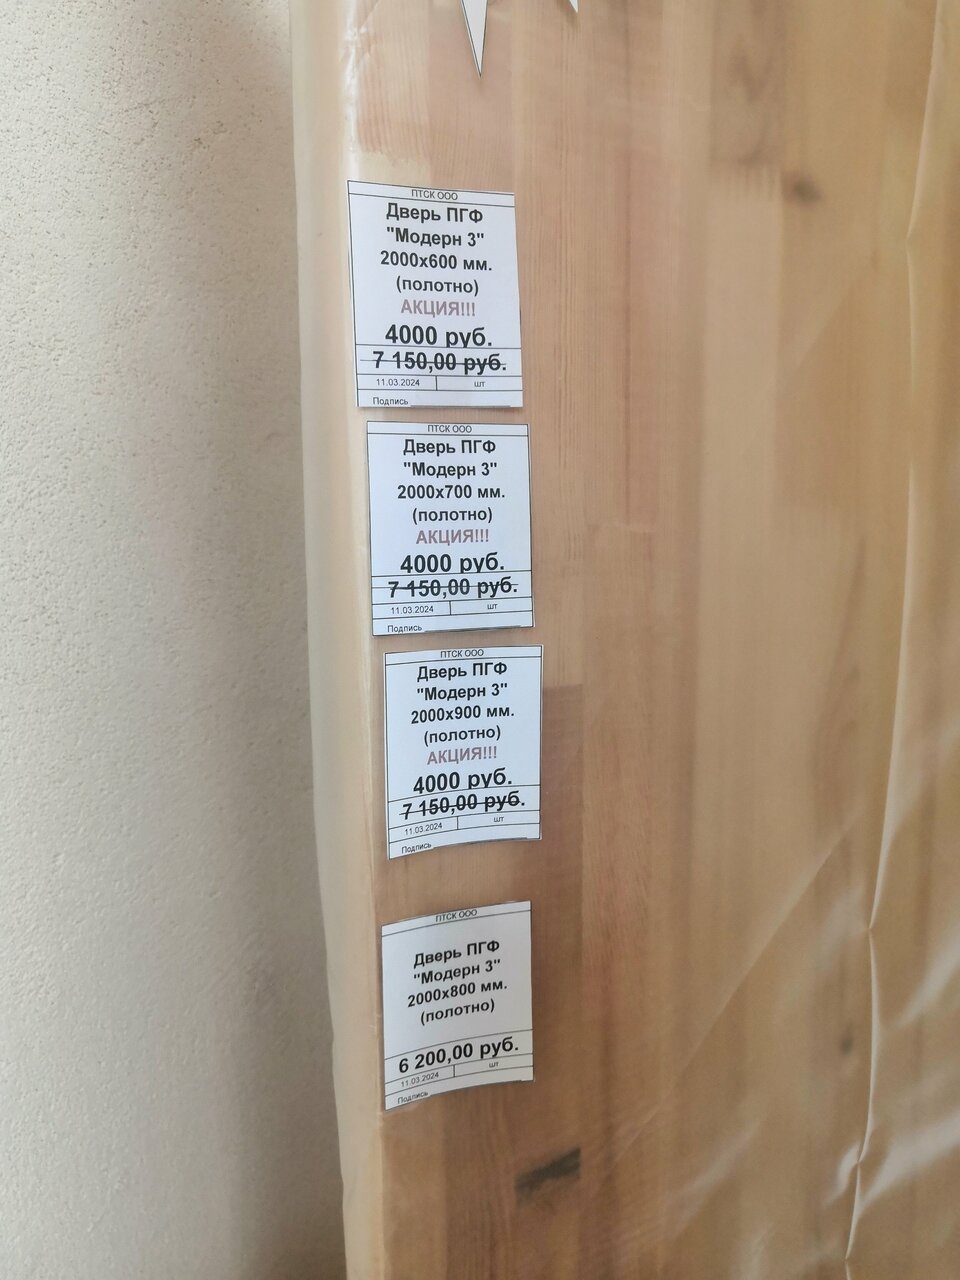 ПТСК ООО
Дверь ПГФ
"Модерн 3"
2000х600 мм.
(полотно)
АКЦИЯ!!!
4000 руб.
7 150,00 руб.
11.03.2024 шт
Подпись
ПТСК ООО
Дверь ПГФ
"Модерн 3"
2000х700 мм.
(полотно)
АКЦИЯ!!!
4000 руб.
7 150,00 руб.
11.03.2024 шт
Подпись
ПТСК ООО
Дверь ПГФ
"Модерн 3"
2000х900 мм.
(полотно)
АКЦИЯ!!!
4000 руб.
7 150,00 руб.
11.03.2024 шт
Подпись
ПТСК ООО
Дверь ПГФ
"Модерн 3"
2000х800 мм.
(полотно)
6 200,00 руб.
11.03.2024 шт
Подпись